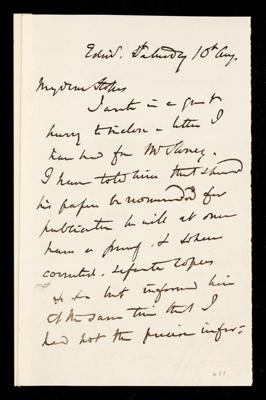 Edinr. Saturday 10th Aug.
My dear Stokes
I write in a great
hurry to inclose a letter I
have had from Mr Stoney.
I have told him that should
his paper be recommended for
publication he will at once
have a proof & when
corrected. separate copies
&c &c but informed him
at the same time that I
had not the precise infor-